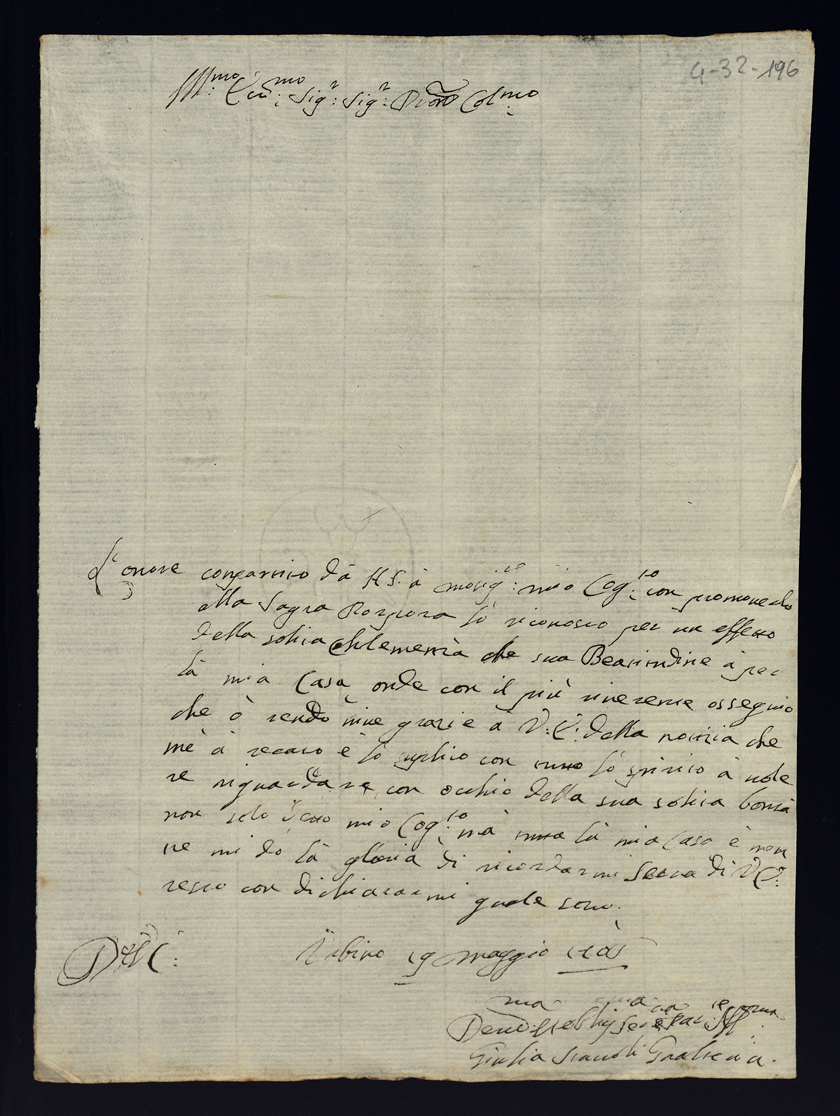 4-32-196
Ill:mo Ecc:mo Sig:r Sig:r Pron Col:mo
L'onore compartito da N.S. à Monsig:re mio Cog:to con promoverlo
alla Sagra Porpora lo riconosco per un effetto
della solita Clemenza che sua Beatitudine à per
la mia Casa, onde con il più riverente ossequio
che ò rendo grazie a V.E. della notizia che
mè à recato e lo suplico con tutto lo spirito à vole
re riguardare con occhio della sua solita bontà
non solo detto mio Cog:to mà tutta la mia casa e men
tre mi dò la gloria di ricordarmi Serva di V.E.
resto con dichiararmi quale sono.
Urbino 19 maggio
D V.E:
Giulia